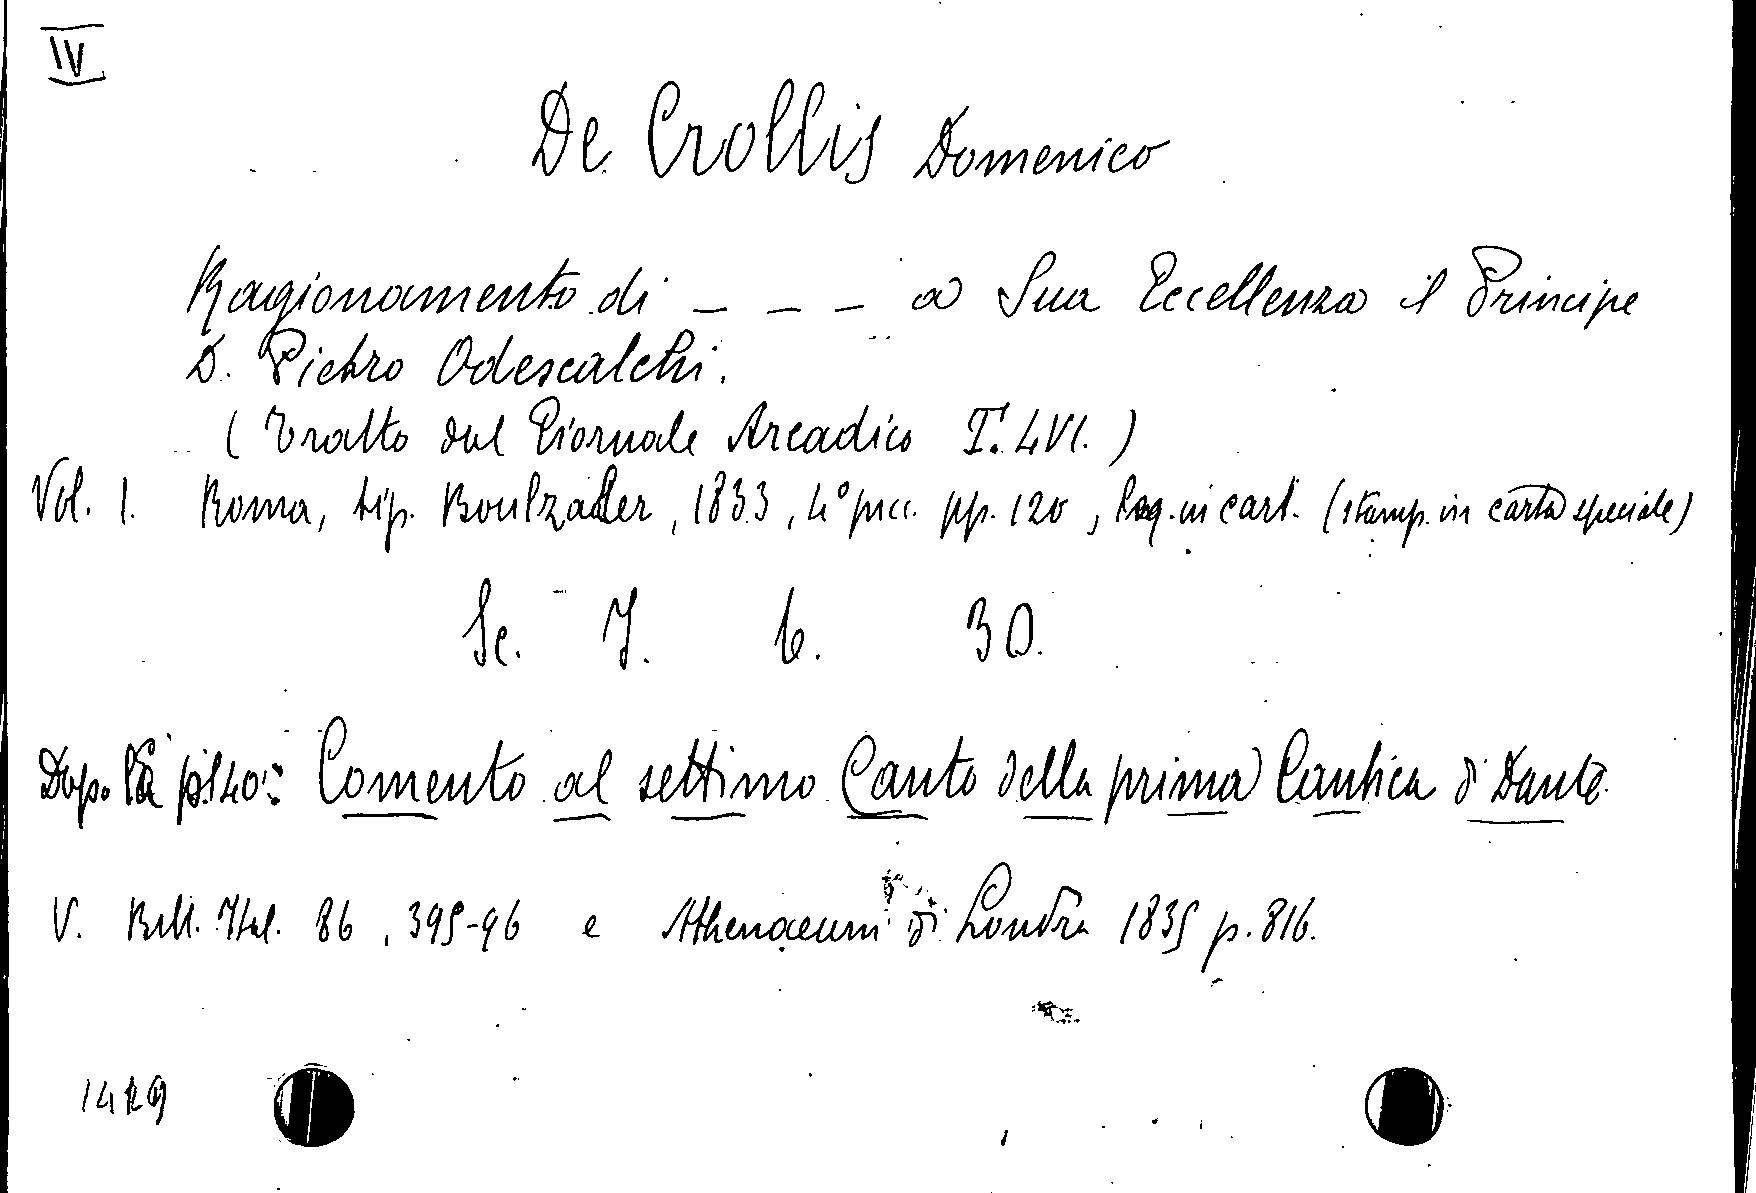 IV
De Crollis Domenico
Ragionamento di _ _ _ a Sua Eccellenza il Principe
D. Pietro Odescalchi.
(Tratto dal Giornale Arcadico T. LVI.)
Vol. 1. Roma, tip. Boulzaler, 1833, 4° picc. pp. 120, leg. in cart. (stamp. in carta speciale)
Sc. 7. 6. 30.
Dopo la p. 40: Comento al settimo Canto della prima Cantica di Dante
V. Bibl. Ital. 86, 395-96 e Athenaeum di Londra 1835 p. 816.